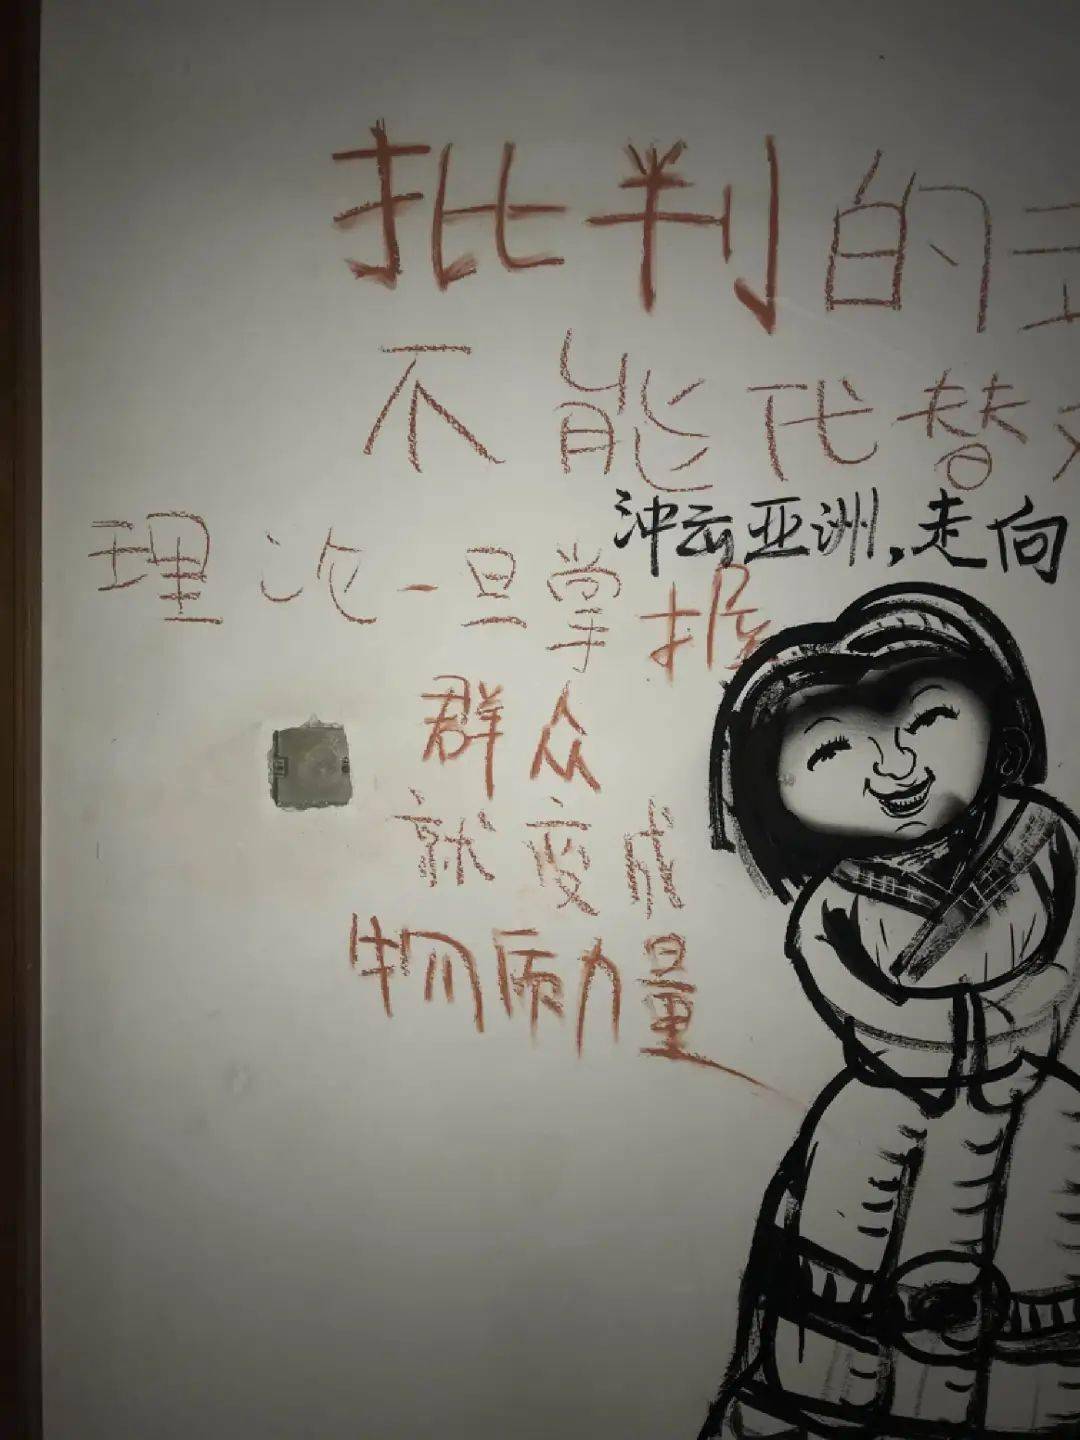 批判的
不能代替
冲云亚洲,走向
理论一旦掌握
群众
就变
物质力量